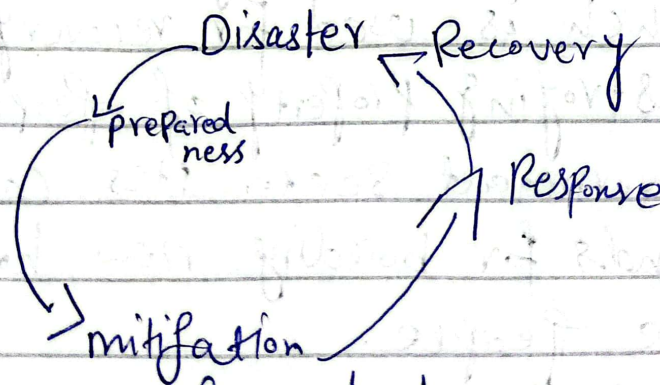 Disaster
Recovery
prepared
ness
Response
mitigation